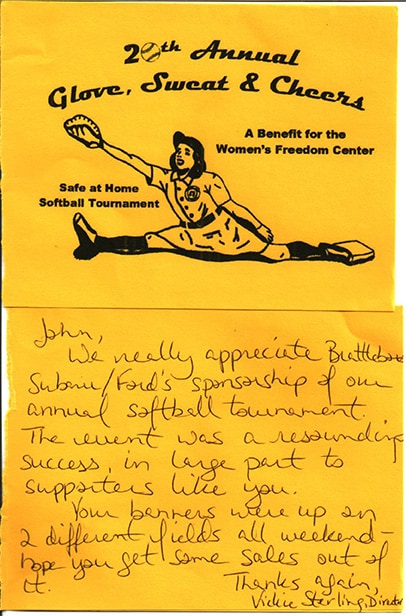 20th Annual
Glove, Sweat & Cheers
A Benefit for the
Women's Freedom Center
Safe at Home
Softball Tournament
John,
We really appreciate Brattleboro
Subaru/Ford's sponsorship of our
annual softball tournament.
The event was a resounding
success, in large part to
supporters like you.
Your banners were up on
2 different fields all weekend -
hope you get some sales out of
it.
Thanks again,
Vickie Sterling, Director